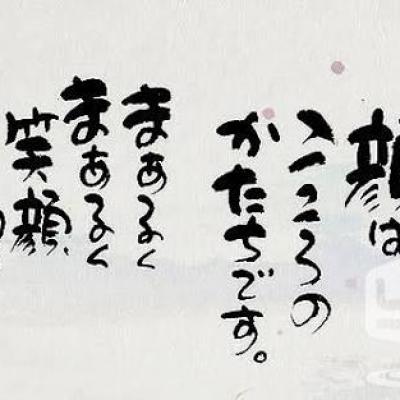 顔は
こころの
かたちです。
まあるく
まあるく
笑顔、